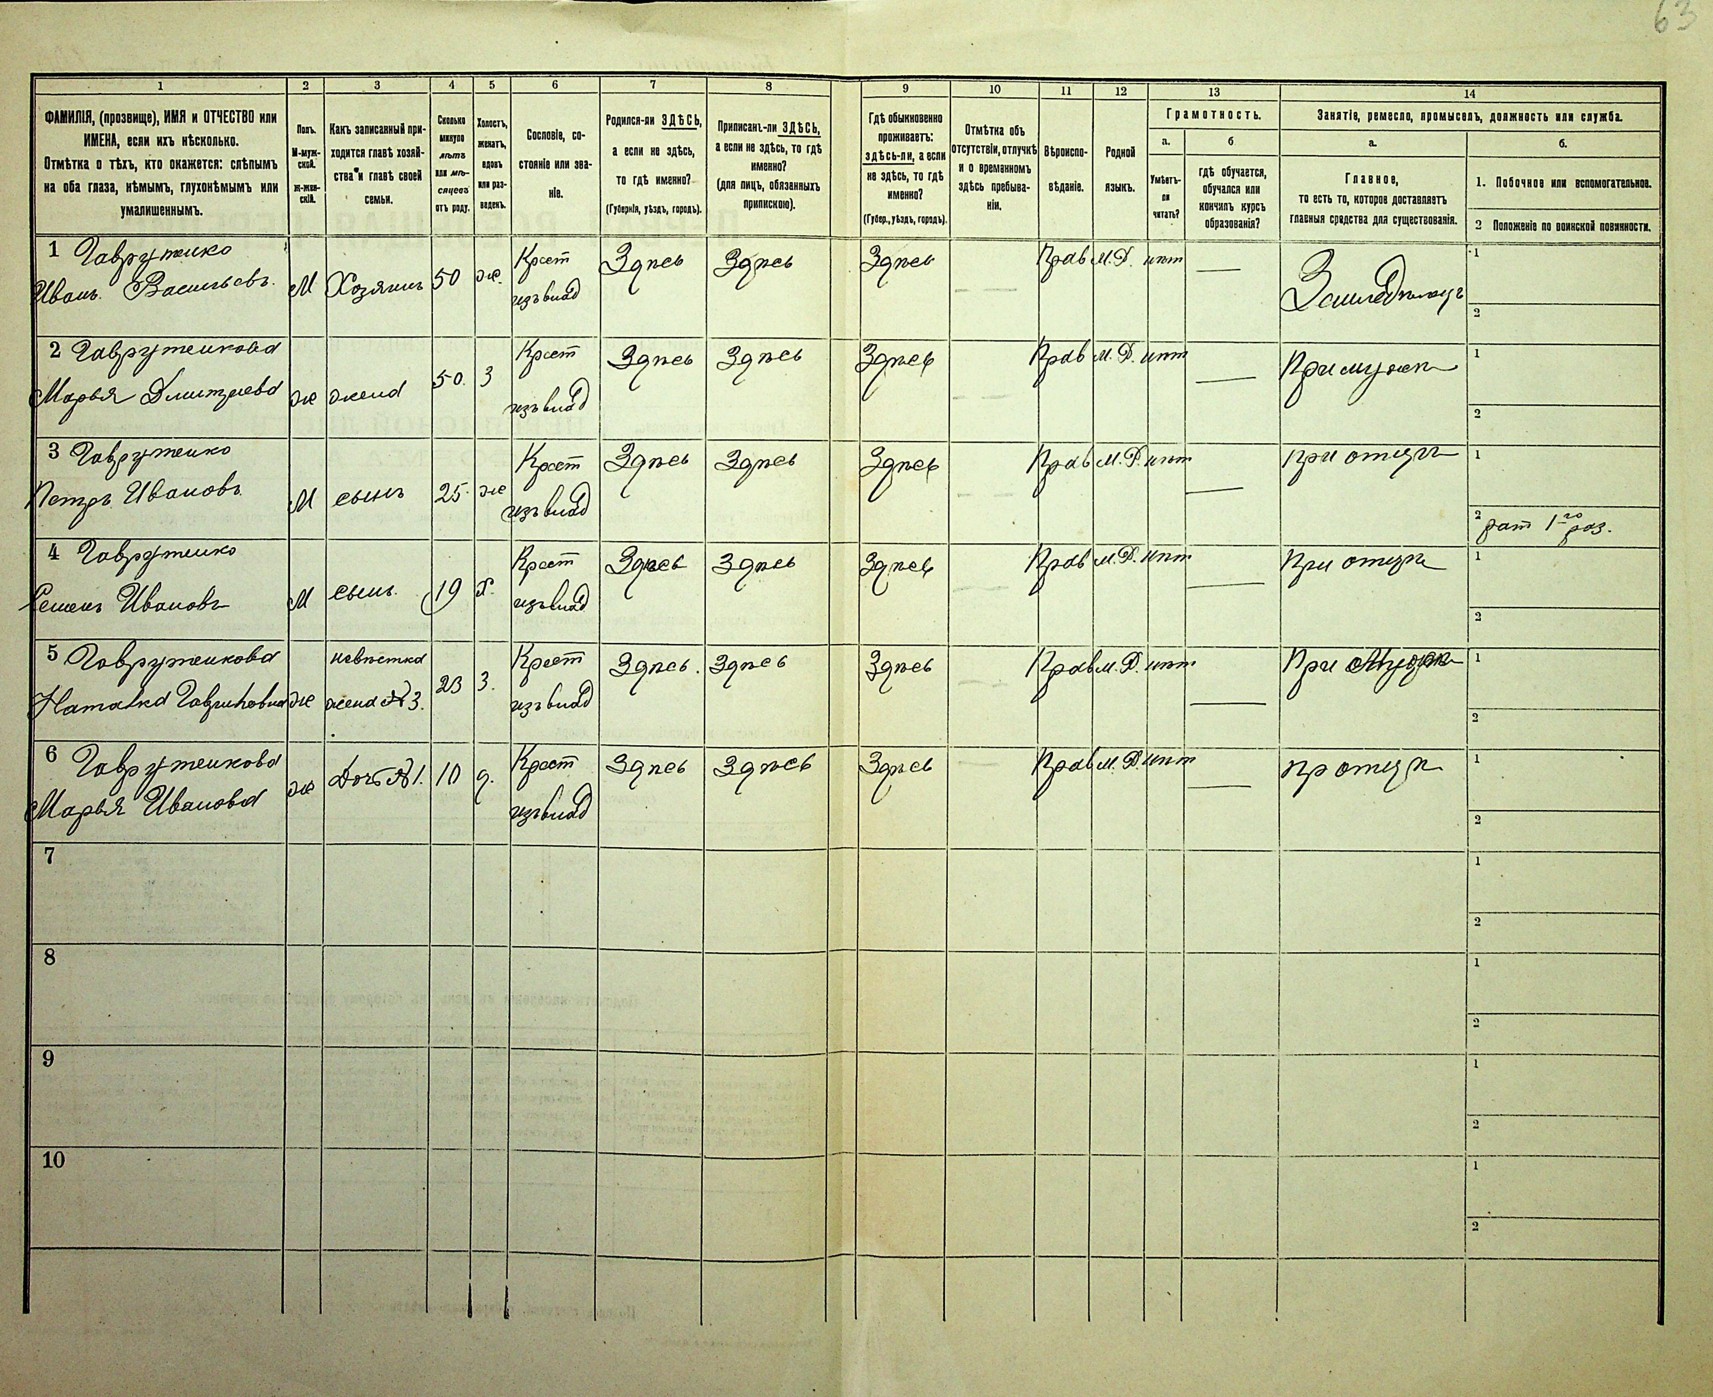 63
1 2 3 4 5 6 7 8 9 10 11 12 13 14
ФАМИЛІЯ, (прозвище), ИМЯ и ОТЧЕСТВО или
ИМЕНА, если ихъ нѣсколько.
Отмѣтка о тѣхъ, кто окажется: слѣпымъ
на оба глаза, нѣмымъ, глухонѣмымъ или
умалишеннымъ.
Полъ.
М-муж-
ской.
ж-жен-
скій.
Какъ записанный при-
ходится главѣ хозяй-
ства и главѣ своей
семьи.
Сколько
минуло
лѣтъ
или мѣ-
сяцевъ
отъ роду.
Холостъ,
женатъ,
вдовъ
или раз-
веденъ.
Сословіе, со-
стояніе или зва-
ніе.
Родился-ли ЗДѢСЬ,
а если не здѣсь,
то гдѣ именно?
(Губернія, уѣздъ, городъ).
Приписанъ-ли ЗДѢСЬ,
а если не здѣсь, то гдѣ
именно?
(для лицъ, обязанныхъ
припискою).
Гдѣ обыкновенно
проживаетъ:
здѣсь-ли, а если
не здѣсь, то гдѣ
именно?
(Губер., уѣздъ, городъ).
Отмѣтка объ
отсутствіи, отлучкѣ
и о временномъ
здѣсь пребыва-
ніи.
Вѣроиспо-
вѣданіе.
Родной
языкъ.
Грамотность.
а. б
Умѣетъ-
ли
читать?
гдѣ обучается,
обучался или
кончилъ курсъ
образованія?
Занятіе, ремесло, промыселъ, должность или служба.
а. б.
Главное,
то есть то, которое доставляетъ
главныя средства для существованія.
1. Побочное или вспомогательное.
2 Положеніе по воинской повинности.
1 Гаврутенко
Иванъ Васильевъ. М Хозяинъ 50 ж. Крест изъ влад Здѣсь Здѣсь Здѣсь Прав М.Р. нѣт — Земледѣлецъ
1
2
2 Гаврутенкова
Марья Дмитріева ж жена 50. З Крест изъ влад Здѣсь Здѣсь Здѣсь Прав М.Р. нѣт — При мужѣ
1
2
3 Гаврутенко
Петръ Ивановъ М сынъ 25. ж Крест изъ влад Здѣсь Здѣсь Здѣсь Прав М.Р. нѣт — При отцѣ
1
2 рат 1-го раз.
4 Гаврутенко
Семенъ Ивановъ М сынъ. 19 х. Крест изъ влад Здѣсь Здѣсь Здѣсь Прав М.Р. нѣт — При отцѣ
1
2
5 Гаврутенкова невѣстка
ж жена №3. 23 З. Крест изъ влад Здѣсь. Здѣсь Здѣсь Прав М.Р. нѣт — При мужѣ
1
2
6 Гаврутенкова
Марья Иванова ж Дочь №1. 10 д. Крест изъ влад Здѣсь Здѣсь Здѣсь Прав М.Р. нѣт — Пр отцѣ
1
2
7
1
2
8
1
2
9
1
2
10
1
2